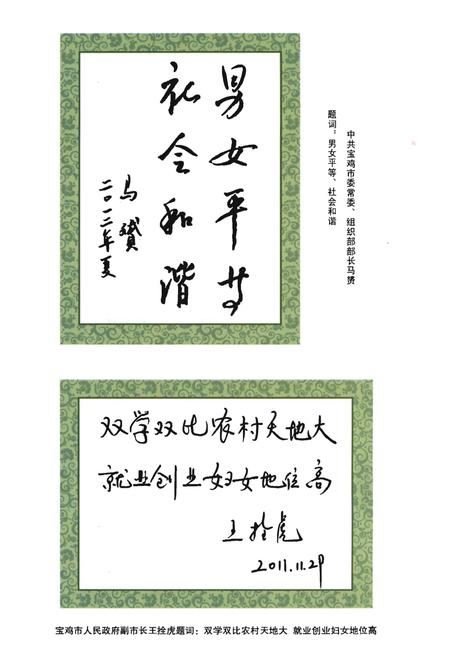 男女平等
社会和谐
马赟
二〇一二年夏
中共宝鸡市委常委、组织部部长马赟
题词：男女平等、社会和谐
双学双比农村天地大
就业创业妇女地位高
王拴虎
2011.11.29
宝鸡市人民政府副市长王拴虎题词：双学双比农村天地大 就业创业妇女地位高